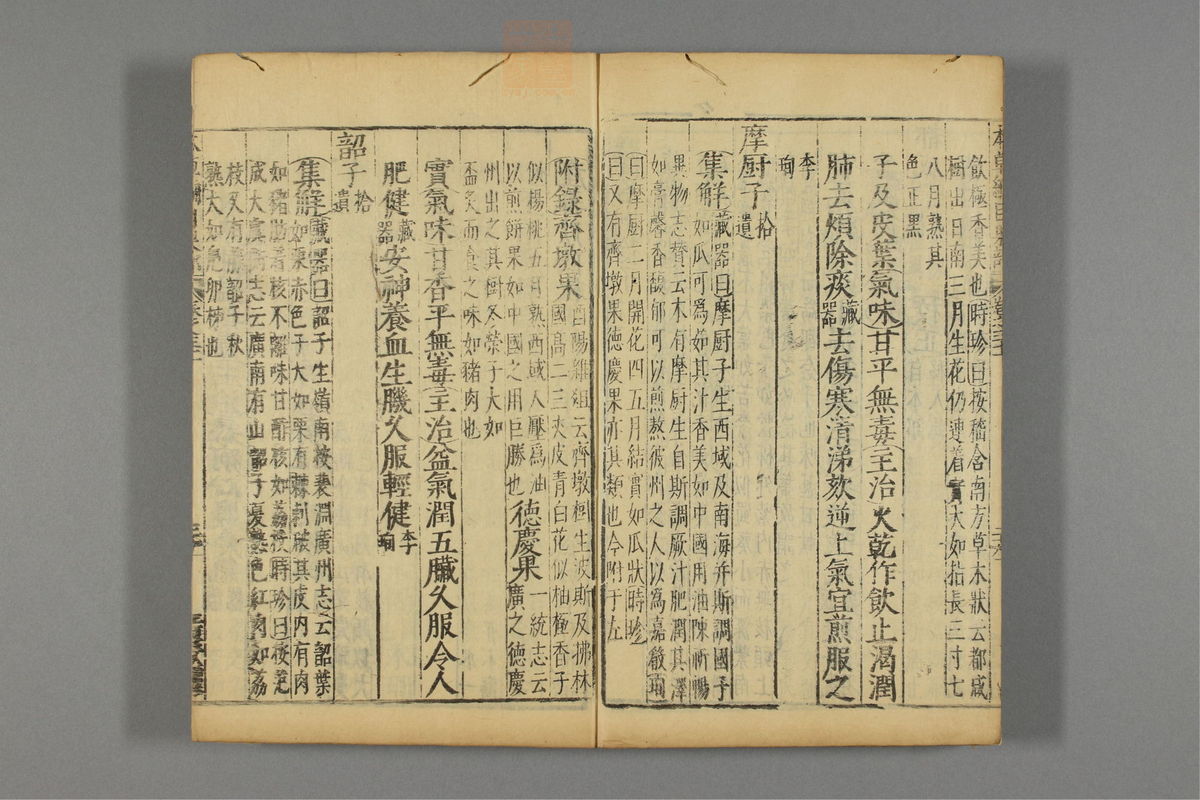 飲極香美也時珍曰按稽含南方草木狀云都咸
樹出日南三月生花仍連着實大如指長三寸七
八月熟其
色正黑
子及皮葉氣味甘平無毒主治火乾作飲止渴潤
肺去煩除痰藏器去傷寒清涕欬逆上氣宜煎服之
李珣
摩厨子拾遺
集解藏器曰摩厨子生西域及南海并斯調國子
如瓜可爲茹其汁香美如中國用油陳祈暢
異物志贊云木有摩厨生自斯調厥汁肥潤其澤
如膏馨香馥郁可以煎熬彼州之人以爲嘉殽珣
曰摩厨二月開花四五月結實如瓜狀時珍
曰又有齊墩果德慶果亦其類也今附于左
附録齊墩果酉陽雜俎云齊墩樹生波斯及拂林
國高二三丈皮青白花似柚極香子
似楊桃五月熟西域人壓爲油
以煎餅果如中國之用巨勝也德慶果一統志云
廣之德慶
州出之其樹冬榮子大如
盃炙而食之味如豬肉也
實氣味甘香平無毒主治益氣潤五臟久服令人
肥健藏器安神養血生肌久服輕健李珣
韶子拾遺
集解藏器曰韶子生嶺南按裴淵廣州志云韶葉
如栗赤色子大如栗有棘刺破其皮内有肉
如豬肪着核不離味甘酢核如荔枝時珍曰按范
成大虞衡志云廣南有山韶子夏熟色紅肉如荔
枝又有藤韶子秋
熟大如鳬卵柿也